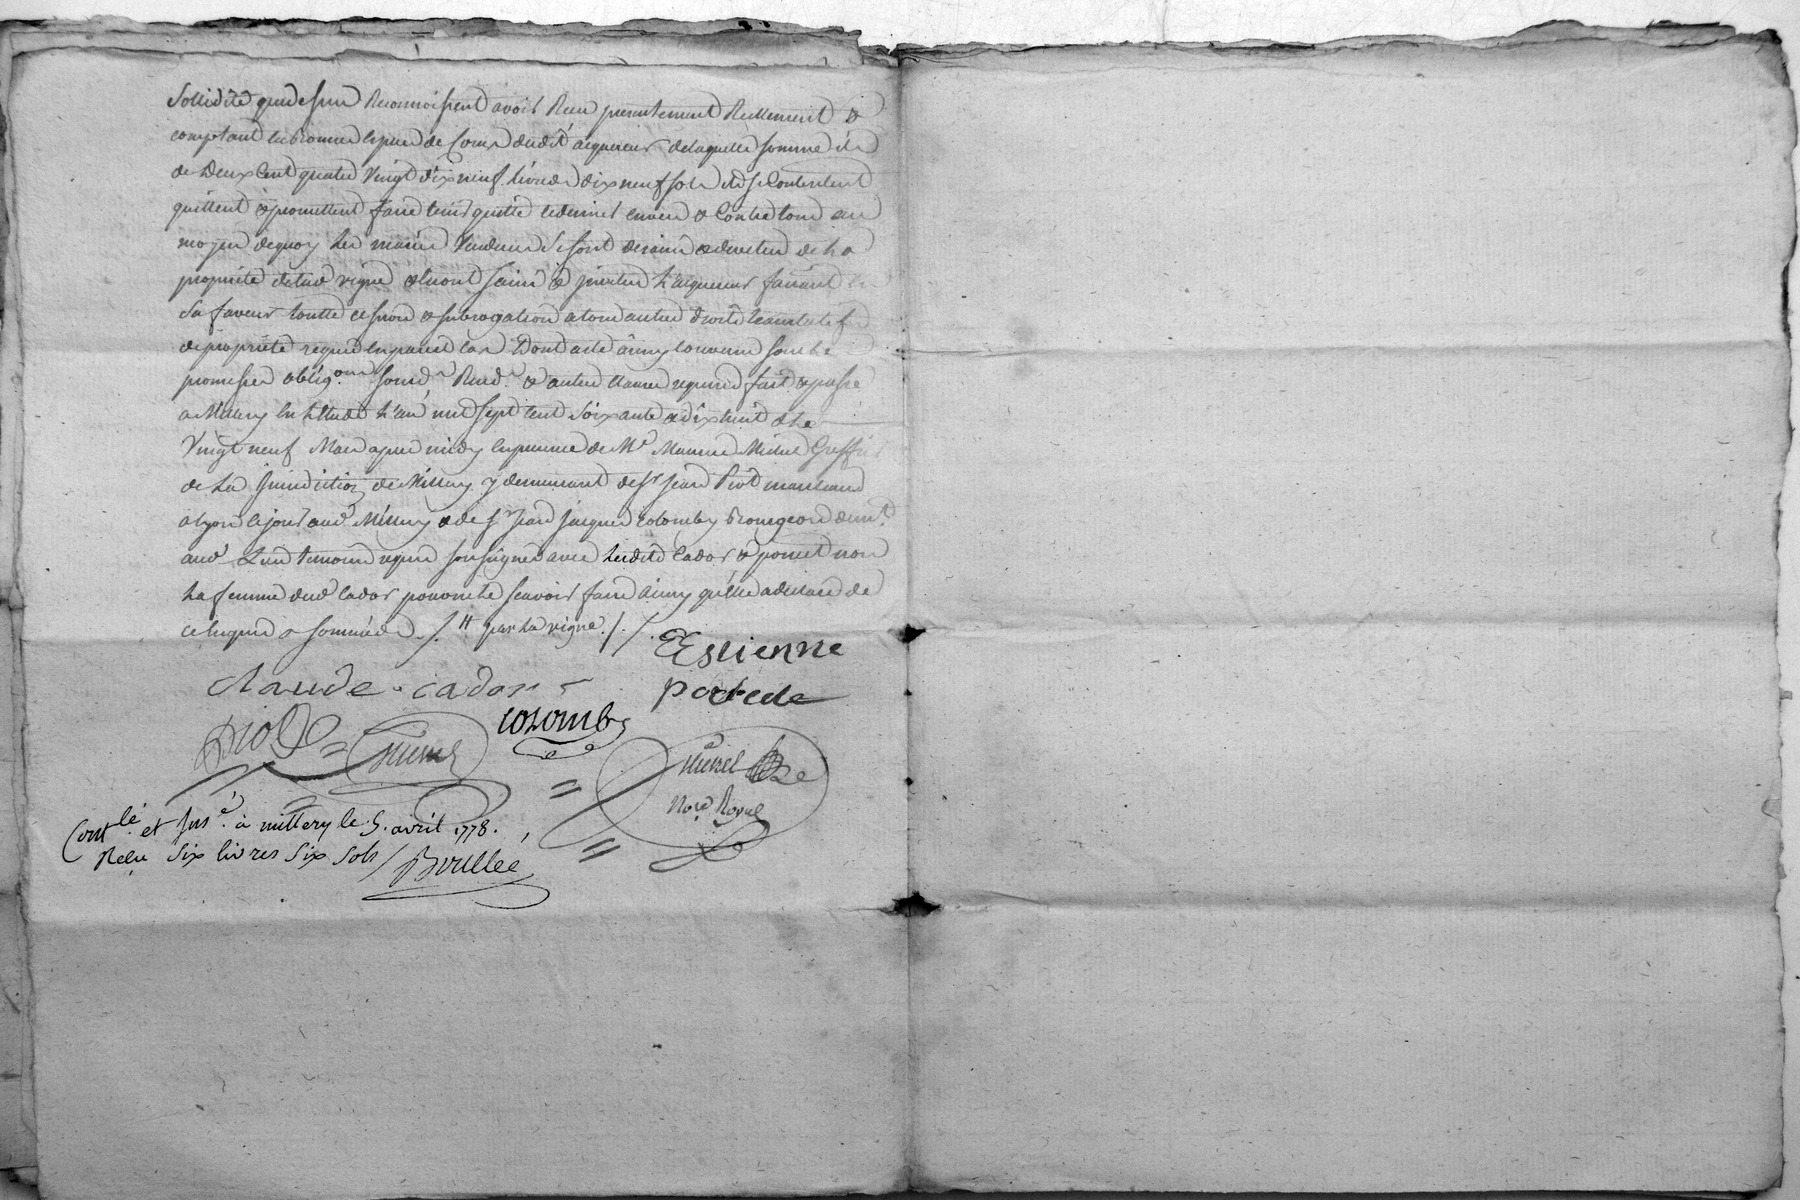 Sollidité quedessus Reconnoissent avoir Reçu presentement Reellement &
comptant en bonnes especes de Cours dudit acquereur de laquelle somme
de Deux Cent quatre Vingt dix neuf livres dix neuf sols ils se Contentent
quittent & promettent faire tenir quitte ledernier envers & Contre tous au
moyen dequoy Les mariés Vendeurs se sont demis & devetus de La
propriété delad vigne & en ont saisi & jnvetu L'acquereur faisant en
Sa faveur toutte cession & subrogation a tous autres droits translatifs
de propriété requis en pareil cas Dont acte ainsy convenu sous les
promesses obligons soumons Renons & autres clauses requises fait & passé
a Millery en L'Etude L'an mil sept cent soixante & dix huit & le
Vingt neuf Mars apres midy en presence de Me Maurice Michel Greffier
de La Jurisdiction de Millery y demeurant de sr Jean Piot marchand
a lyon sejourt aud Millery & de sr Jean Jacques Colomby Bourgeois demt
aud Lieu temoins requis soussignés avec Lesdits Cador & porret non
La femme dud Cador pour ne le scavoir faire ainsy qu'elle a declaré de
ce enquise & sommée ./. # par La vigne ./.
Estienne
Claude Cador
colomby
Michel
Nore Royal
Contlé et Insé à millery le 5. avril 1778.
Recu Six livres Six Sols / Brullée